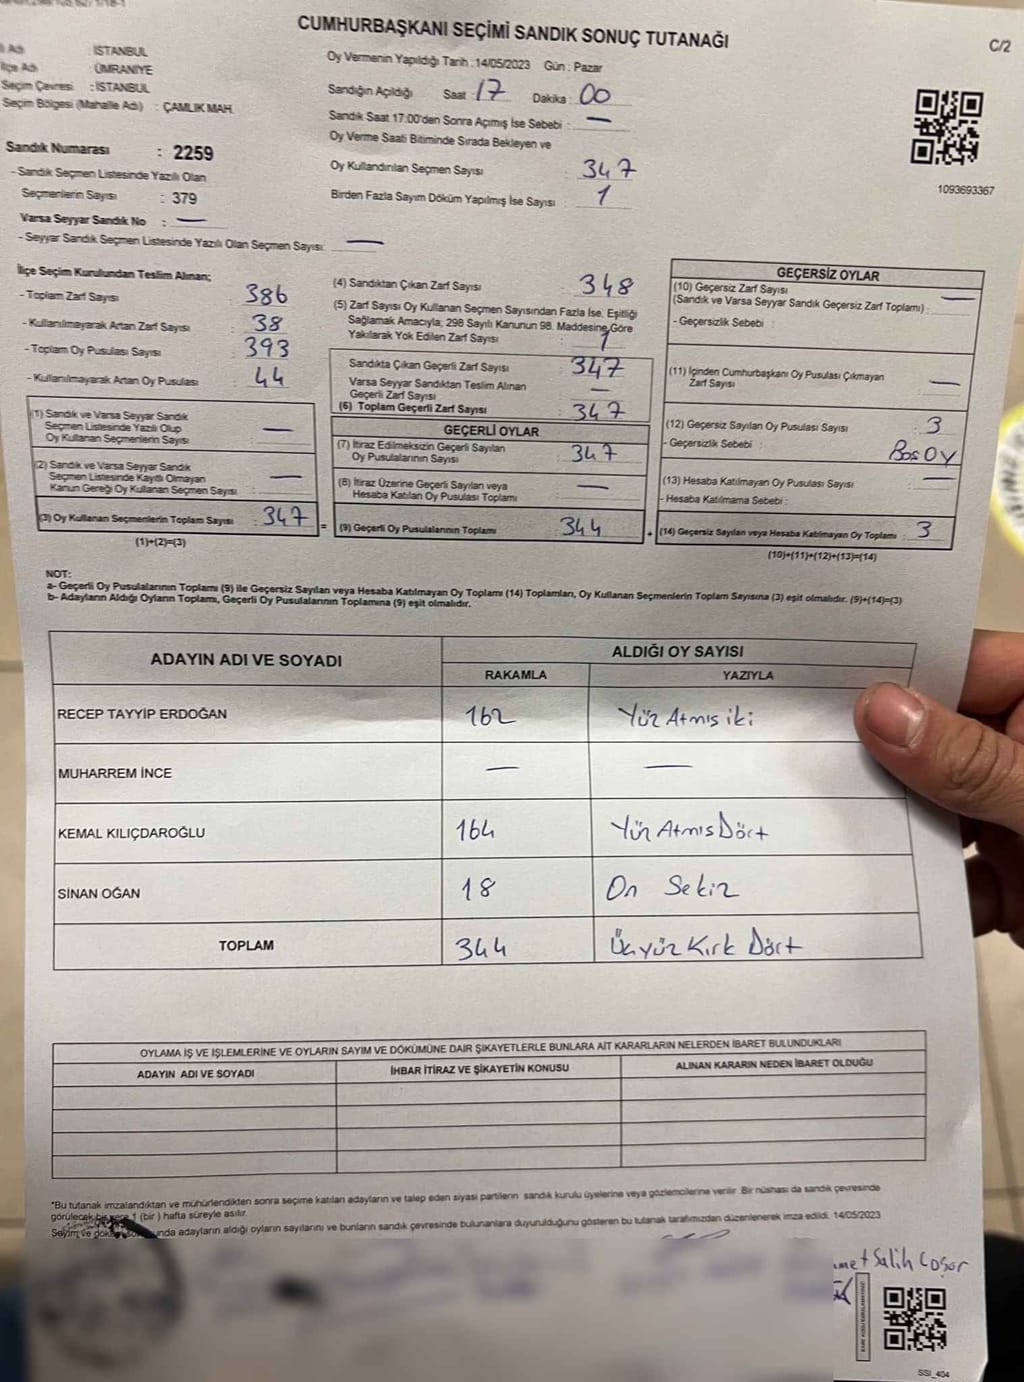 CUMHURBAŞKANI SEÇİMİ SANDIK SONUÇ TUTANAĞI
C/2
İl Adı : İSTANBUL
İlçe Adı : ÜMRANİYE
Seçim Çevresi : İSTANBUL
Seçim Bölgesi (Mahalle Adı) : ÇAMLIK MAH.
Sandık Numarası : 2259
- Sandık Seçmen Listesinde Yazılı Olan
Seçmenlerin Sayısı : 379
Varsa Seyyar Sandık No : —
- Seyyar Sandık Seçmen Listesinde Yazılı Olan Seçmen Sayısı: —
Oy Vermenin Yapıldığı Tarih : 14/05/2023 Gün : Pazar
Sandığın Açıldığı Saat : 17 Dakika : 00
Sandık Saat 17:00'den Sonra Açımış İse Sebebi : —
Oy Verme Saati Bitiminde Sırada Bekleyen ve
Oy Kullandırılan Seçmen Sayısı : 347
Birden Fazla Sayım Döküm Yapılmış İse Sayısı : 1
1093693367
İlçe Seçim Kurulundan Teslim Alınan;
- Toplam Zarf Sayısı : 386
- Kullanılmayarak Artan Zarf Sayısı : 38
- Toplam Oy Pusulası Sayısı : 393
- Kullanılmayarak Artan Oy Pusulası : 44
(1) Sandık ve Varsa Seyyar Sandık
Seçmen Listesinde Yazılı Olup
Oy Kullanan Seçmenlerin Sayısı : —
(2) Sandık ve Varsa Seyyar Sandık
Seçmen Listesinde Kayıtlı Olmayan
Kanun Gereği Oy Kullanan Seçmen Sayısı : —
(3) Oy Kullanan Seçmenlerin Toplam Sayısı : 347 =
(1)+(2)=(3)
(4) Sandıktan Çıkan Zarf Sayısı : 348
(5) Zarf Sayısı Oy Kullanan Seçmen Sayısından Fazla İse, Eşitliği
Sağlamak Amacıyla, 298 Sayılı Kanunun 98. Maddesine Göre
Yakılarak Yok Edilen Zarf Sayısı : 1
Sandıkta Çıkan Geçerli Zarf Sayısı : 347
Varsa Seyyar Sandıktan Teslim Alınan
Geçerli Zarf Sayısı : —
(6) Toplam Geçerli Zarf Sayısı : 347
GEÇERLİ OYLAR
(7) İtiraz Edilmeksizin Geçerli Sayılan
Oy Pusulalarının Sayısı : 347
(8) İtiraz Üzerine Geçerli Sayılan veya
Hesaba Katılan Oy Pusulası Toplamı : —
(9) Geçerli Oy Pusulalarının Toplamı : 344 +
GEÇERSİZ OYLAR
(10) Geçersiz Zarf Sayısı
(Sandık ve Varsa Seyyar Sandık Geçersiz Zarf Toplamı) : —
- Geçersizlik Sebebi :
(11) İçinden Cumhurbaşkanı Oy Pusulası Çıkmayan
Zarf Sayısı : —
(12) Geçersiz Sayılan Oy Pusulası Sayısı : 3
- Geçersizlik Sebebi : Boş OY
(13) Hesaba Katılmayan Oy Pusulası Sayısı : —
- Hesaba Katılmama Sebebi :
(14) Geçersiz Sayılan veya Hesaba Katılmayan Oy Toplamı : 3
(10)+(11)+(12)+(13)=(14)
NOT:
a- Geçerli Oy Pusulalarının Toplamı (9) ile Geçersiz Sayılan veya Hesaba Katılmayan Oy Toplamı (14) Toplamları, Oy Kullanan Seçmenlerin Toplam Sayısına (3) eşit olmalıdır. (9)+(14)=(3)
b- Adayların Aldığı Oyların Toplamı, Geçerli Oy Pusulalarının Toplamına (9) eşit olmalıdır.
ADAYIN ADI VE SOYADI
ALDIĞI OY SAYISI
RAKAMLA YAZIYLA
RECEP TAYYİP ERDOĞAN 162 Yüz Atmış iki
MUHARREM İNCE — —
KEMAL KILIÇDAROĞLU 164 Yüz Atmış Dört
SİNAN OĞAN 18 On Sekiz
TOPLAM 344 Üçyüz Kırk Dört
OYLAMA İŞ VE İŞLEMLERİNE VE OYLARIN SAYIM VE DÖKÜMÜNE DAİR ŞİKAYETLERLE BUNLARA AİT KARARLARIN NELERDEN İBARET BULUNDUKLARI
ADAYIN ADI VE SOYADI İHBAR İTİRAZ VE ŞİKAYETİN KONUSU ALINAN KARARIN NEDEN İBARET OLDUĞU
*Bu tutanak imzalandıktan ve mühürlendikten sonra seçime katılan adayların ve talep eden siyasi partilerin sandık kurulu üyelerine veya gözlemcilerine verilir. Bir nüshası da sandık çevresinde
görülecek bir yere 1 (bir) hafta süreyle asılır.
Sayım ve adayların aldığı oyların sayılarını ve bunların sandık çevresinde bulunanlara duyurulduğunu gösteren bu tutanak tarafımızdan düzenlenerek imza edildi. 14/05/2023
Salih Coşar
SSI_404